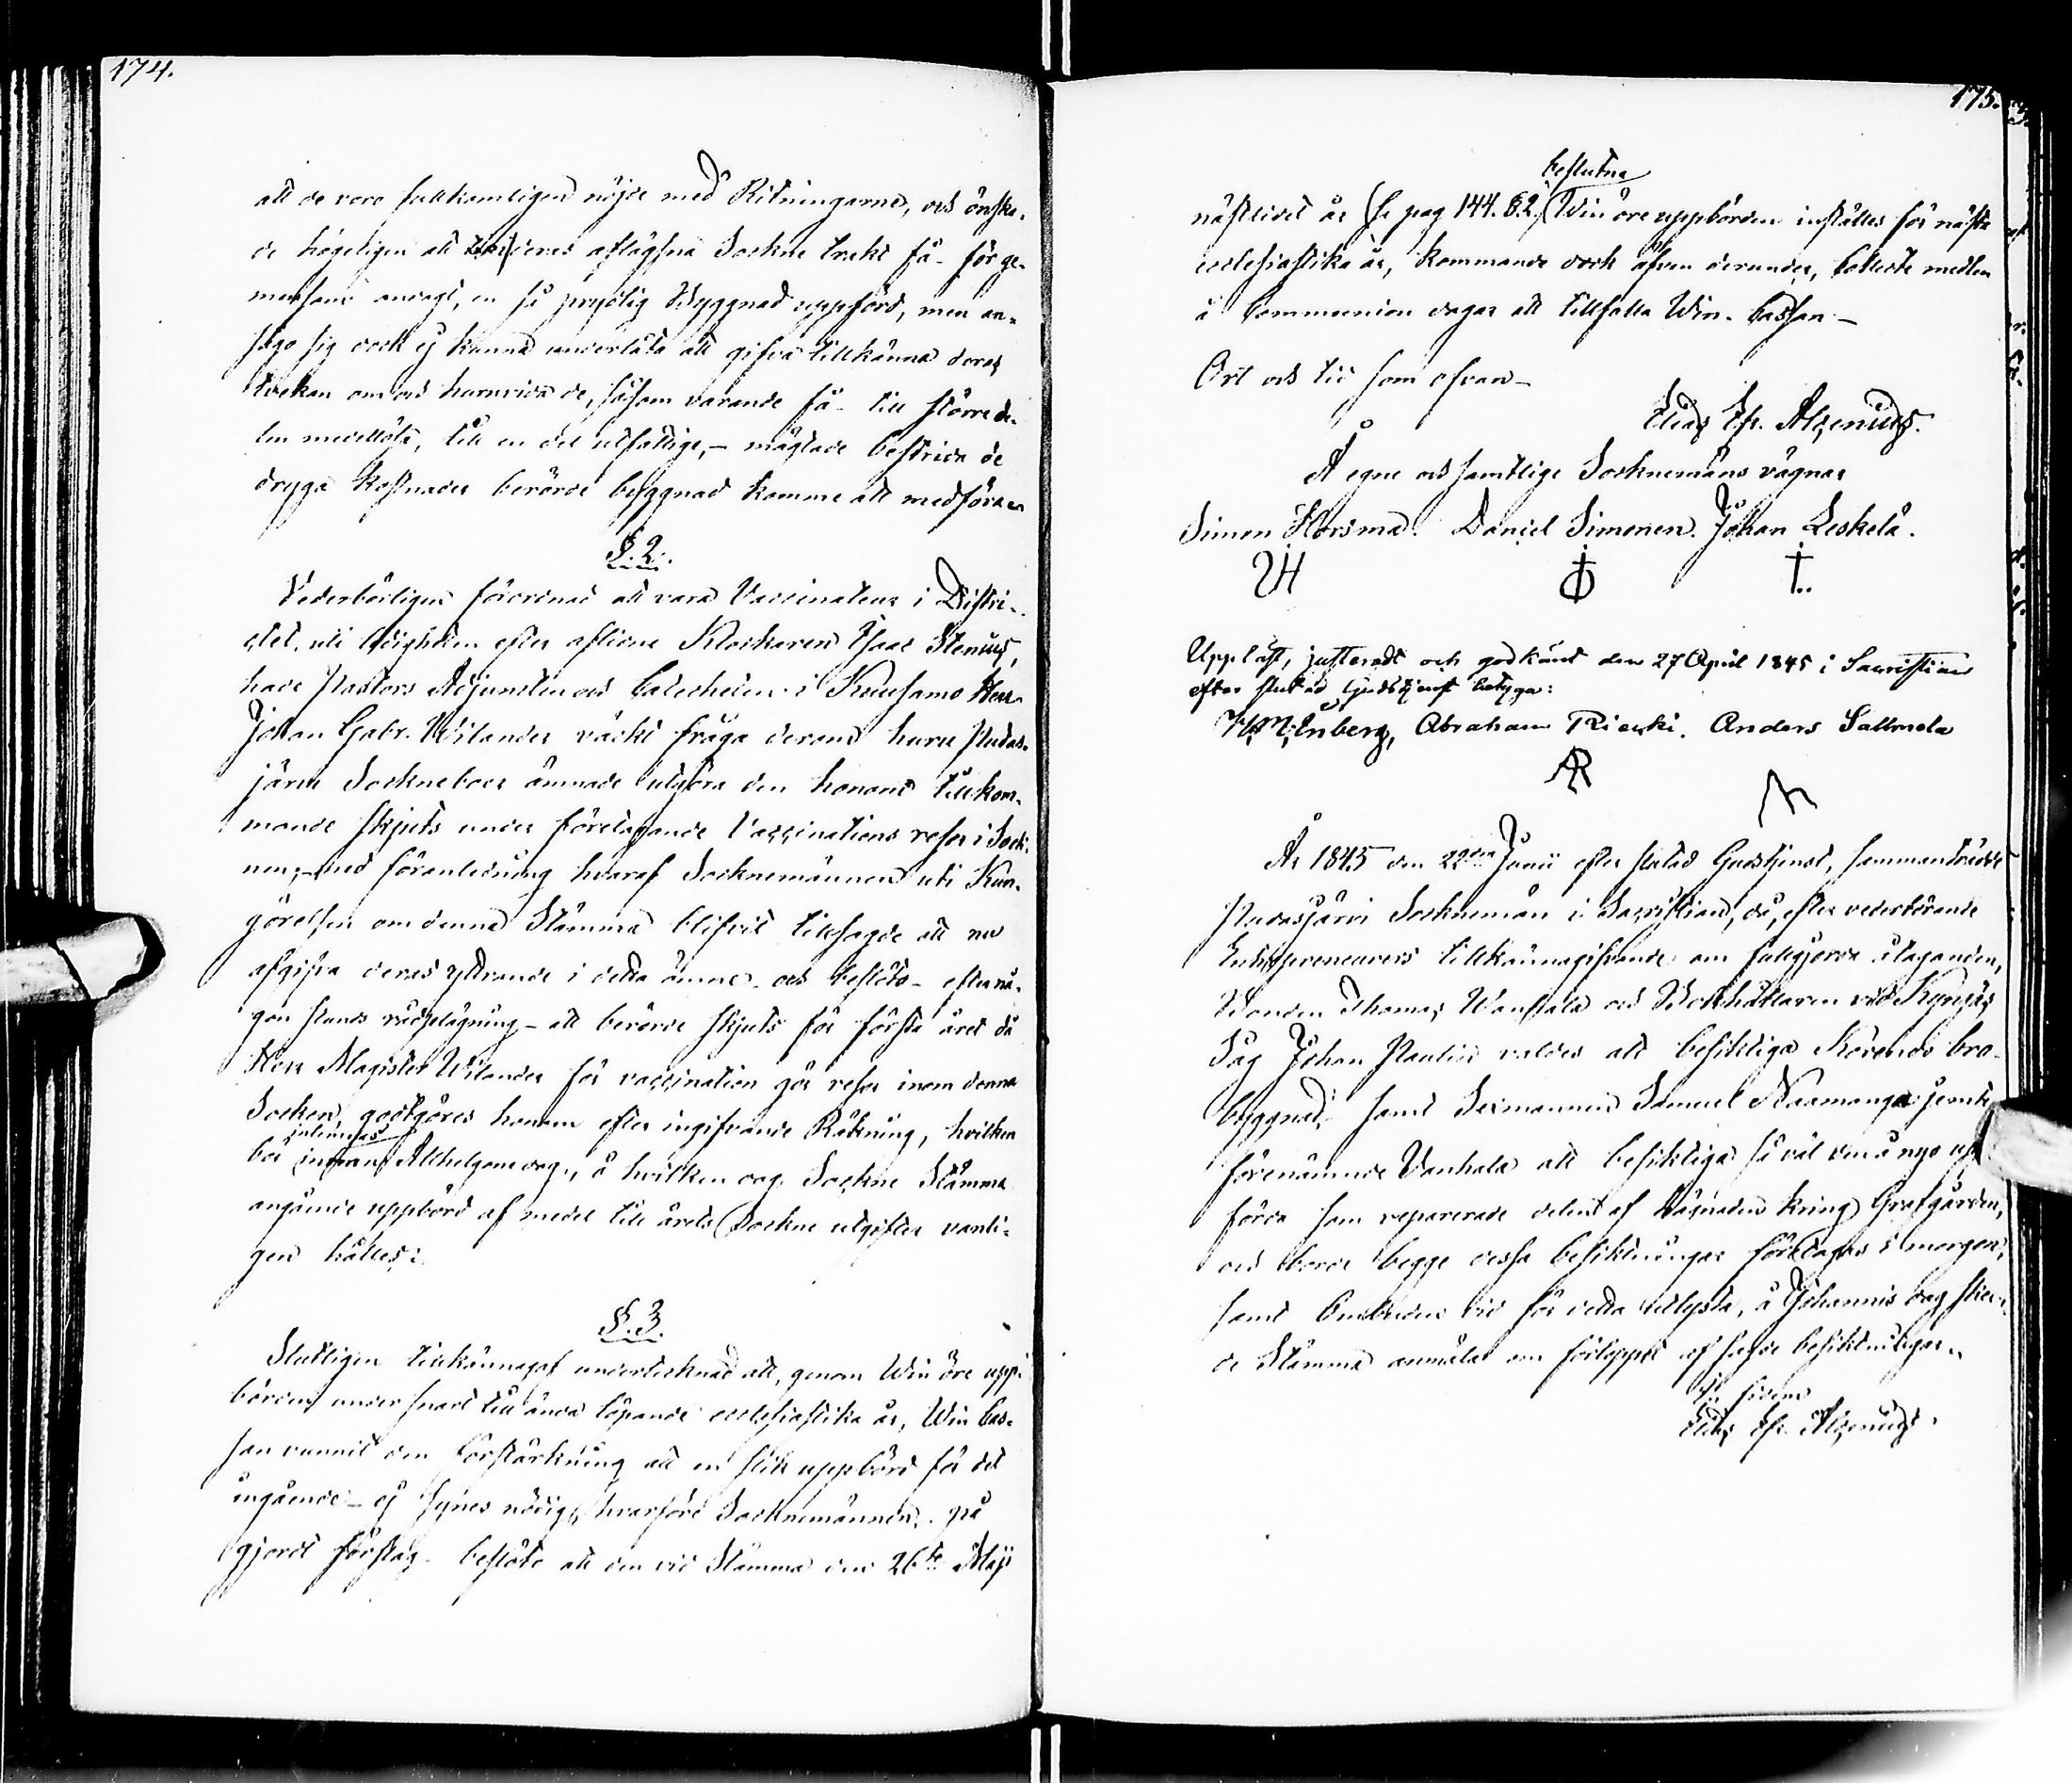 174.
att de voro fullkomligen nöjde med Ritningarne, och önska-
de högeligen att uti deras aflägsna Sockne trakt få för ge-
mensam andagt, en så prydlig Byggnad uppförd, men an-
sågo sig dock ej kunna underlåta att gifva tillkänna deras
tvekan om och huruvida de, såsom varande få till större de-
len medellöse, till en del utfattige, – mägtade bestrida de
dryga kostnader berörde byggnad komme att medföra.
§. 2.
Vederbörligen förordnad att vara Vaccinateur i Distri-
ctet, uti ledigheten efter aflidne Klockaren Isaac Stenius,
hade Pastors Adjuncten och Catecheten i Kuusamo Herr
Johan Gabr. Wilander väckt fråga derom huru Pudas-
järvi Socknebor ämnade utgöra den honom tillkom-
mande skjuts under företagande Vaccinations resor i Sock-
nen; – med föranledning hvaraf Socknemännen uti Kun-
görelsen om denna Stämma blifvit tillsagde att nu
afgifva deras yttrande i detta ämne och beslöts – efter nå-
gon stunds rådplägning – att berörde skjuts för första året då
Herr Magister Wilander för vaccination gör resor inom denna
Socken, godtgöres honom efter ingifvande Räkning, hvilken
inlemnas
bör innan Allhelgonedag, å hvilken dag Sockne Stämma
angående uppbörd af medel till årets Sockne utgifter vanli-
gen hålles.
§. 3.
Slutligen tillkännagaf undertecknad att, genom Win öre upp-
börden under snart till ända löpande ecclesiastika år, Win Cas-
san vunnit den förstärkning att en slik uppbörd för det
ingående – ej synes nödig, hvarföre Socknemännen på
gjordt förslag beslöto att den vid Stämma den 26te Maji
175.
beslutna
nästledet år (se pag 144. §.2.) Win öre uppbörden inställes för nästa
ecclesiastika år, kommande dock äfven derunder, Collecte medlen
å Communion dagar att tillfalla Win Cassan –
Ort och tid som ofvan –
Elias Ef. Alcenius.
Å egne och samtlige Socknemäns vägnar
Simon Horsma. Daniel Simonen. Johan Leskelä.
SH
Uppläst, justeradt och godkänt den 27 April 1845 i Sacristian
efter slutad Gudstjenst betyga:
Enberg, Abraham Riekki. Anders Sallmela
AR
År 1845 den 22dra Junii efter slutad Gudstjenst, sammanträdde
Pudasjärvi Socknemän i Sacristian, då, efter vederbörande
Entrepreneurers tillkännagifvande om fullgjorde åtaganden,
Bonden Thomas Wanhala och Bokhållaren vid Kyngäs
Såg Johan Paulin valdes att besiktiga Korends bro-
byggnad, samt Sexmannen Samuel Naamanga jemte
förenämnde Vanhala att besiktiga så väl den å nyo upp
förda som reparerade delen af hägnaden kring Grafgården,
och borde begge dessa besiktningar företagas i morgon,
samt Ombuden vid för detta utlysta, å Johannis dag skee-
de Stämma anmäla om förloppet af skedde besiktningar.
In fidem
Elias Ef. Alcenius.